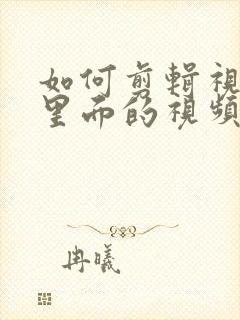 如何剪辑視
里而的視頻
冉曦